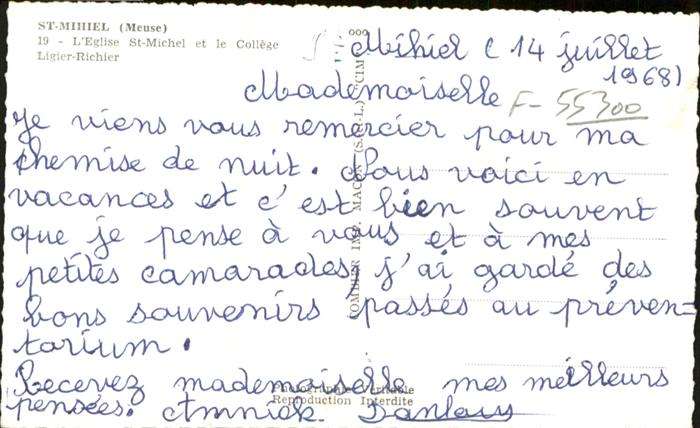 ST-MIHIEL (Meuse)
19 - L'Eglise St-Michel et le Collège
Ligier-Richier
St Mihiel ( 14 juillet
1968)
Mademoiselle
F- 55300
Je viens vous remercier pour ma
chemise de nuit. Nous voici en
vacances et c'est bien souvent
que je pense à vous et à mes
petites camarades j'ai gardé des
bons souvenirs passés au préven=
torium.
Recevez mademoiselle mes meilleurs
pensées. Annick
COMBIER IMP. MACON (S.-&-L.) "CIM"
Photographie Véritable
Reproduction Interdite